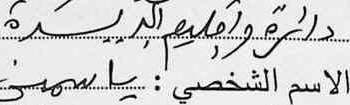 دائرة وإقليم الدريسدة
الاسم الشخصي : ياسمين